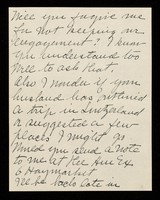 Will you forgive me
for not keeping our
engagement? I know
you understand too
well to ask that.
Also I wonder if you
husband has outlined
a trip in Switzerland
or suggested a few
places I might go
Would you send a note
to me at the Am Ex
6 Haymarket
I'll be back late in